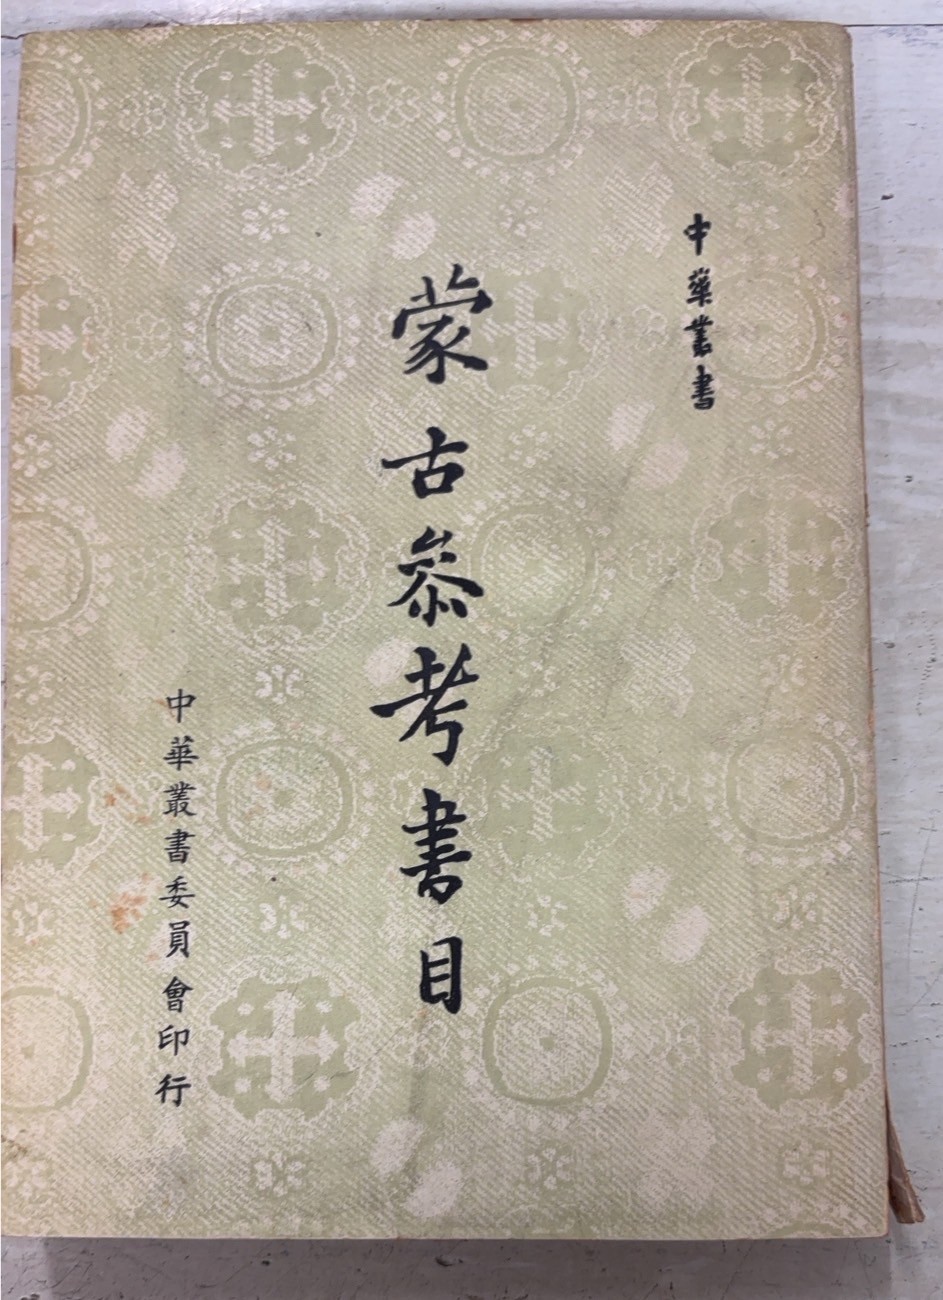 中華叢書
蒙古叅考書目
中華叢書委員會印行